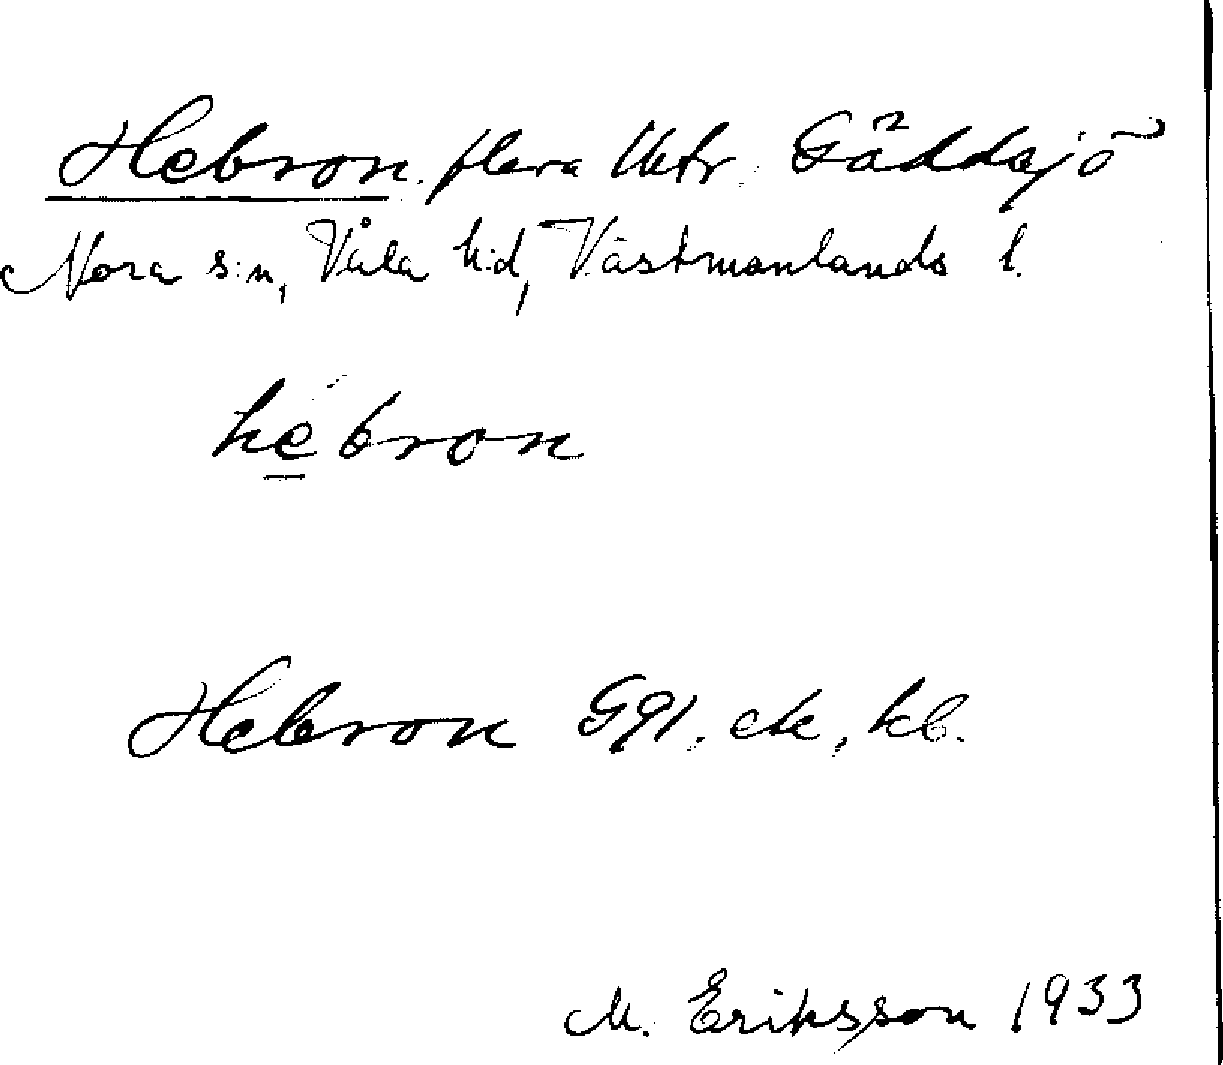 Hebron. flera lktr. Gäddsjö
Nora s:n, Våla h:d, Västmanlands l.
hebron
Hebron G91. ek, kb.
M. Eriksson 1933